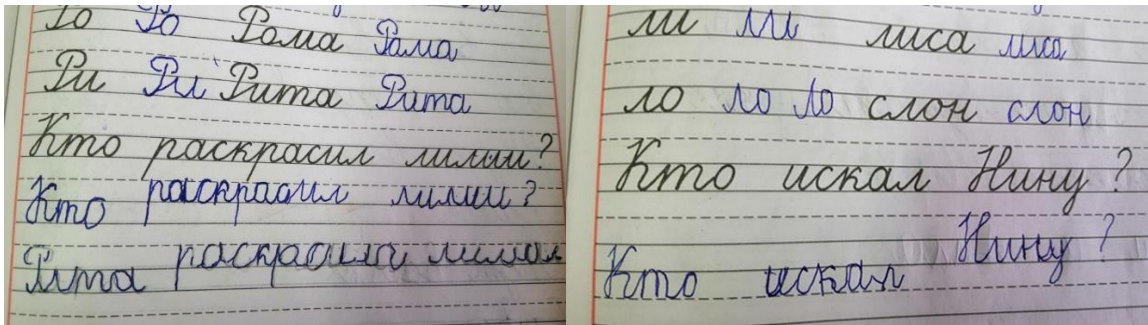 Ро Ро Рома Рома
Ри Ри Рита Рита
Кто раскрасил лилии?
Кто раскрасил лилии?
Рита раскрасила
ли ли лиса лиса
ло ло ло слон слон
Кто искал Нину?
Кто искал Нину?